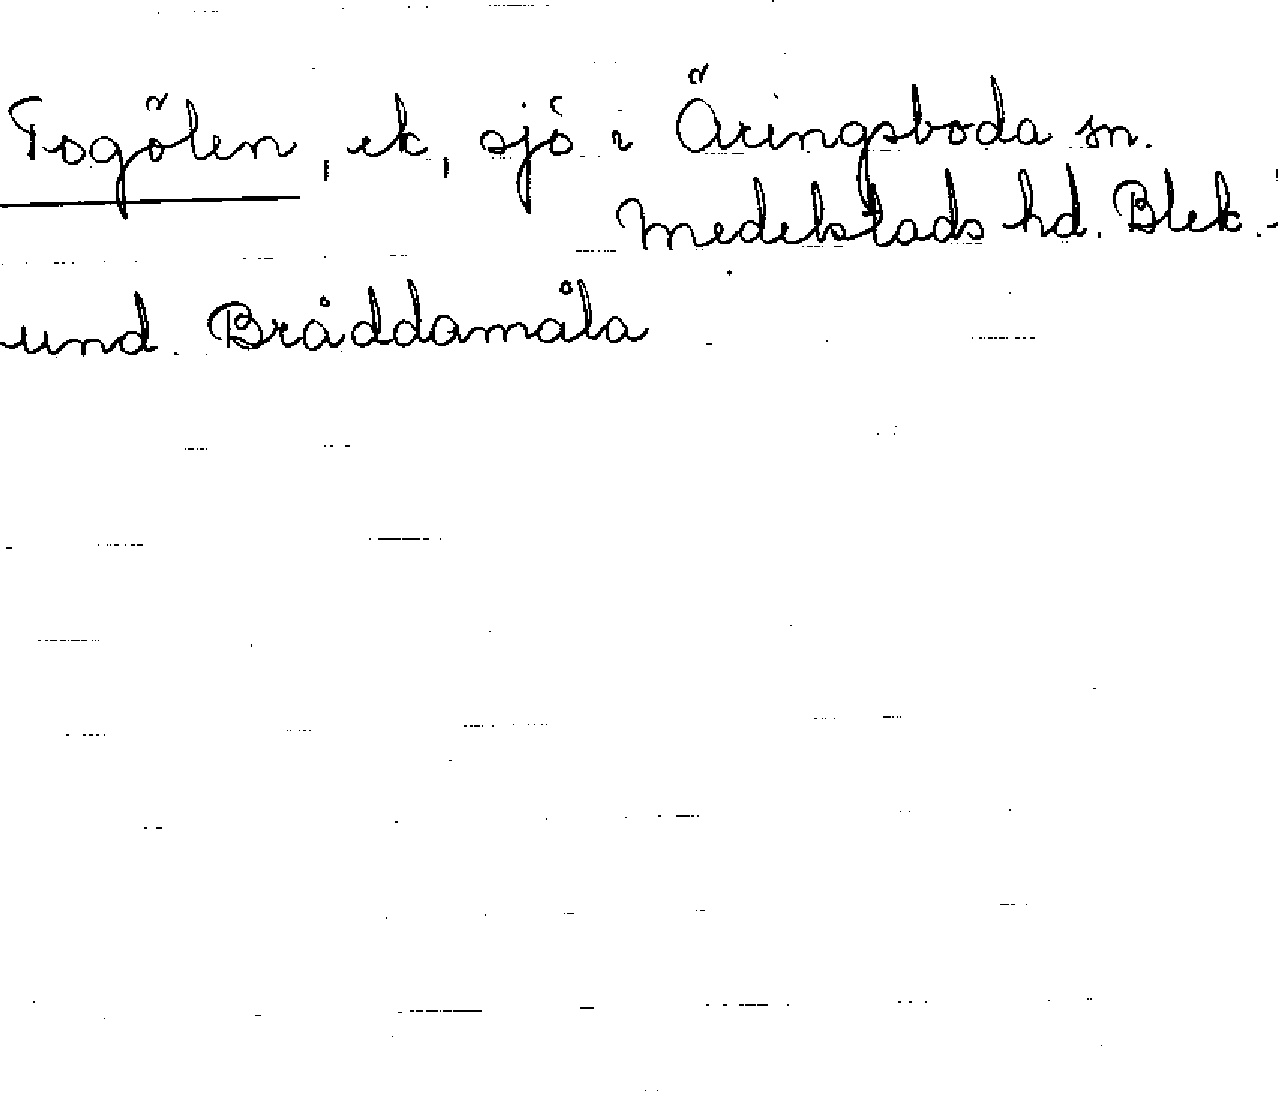 Togölen, ek, sjö i Öringsboda sn.
Medelstads hd. Blek.
und. Bråddamåla